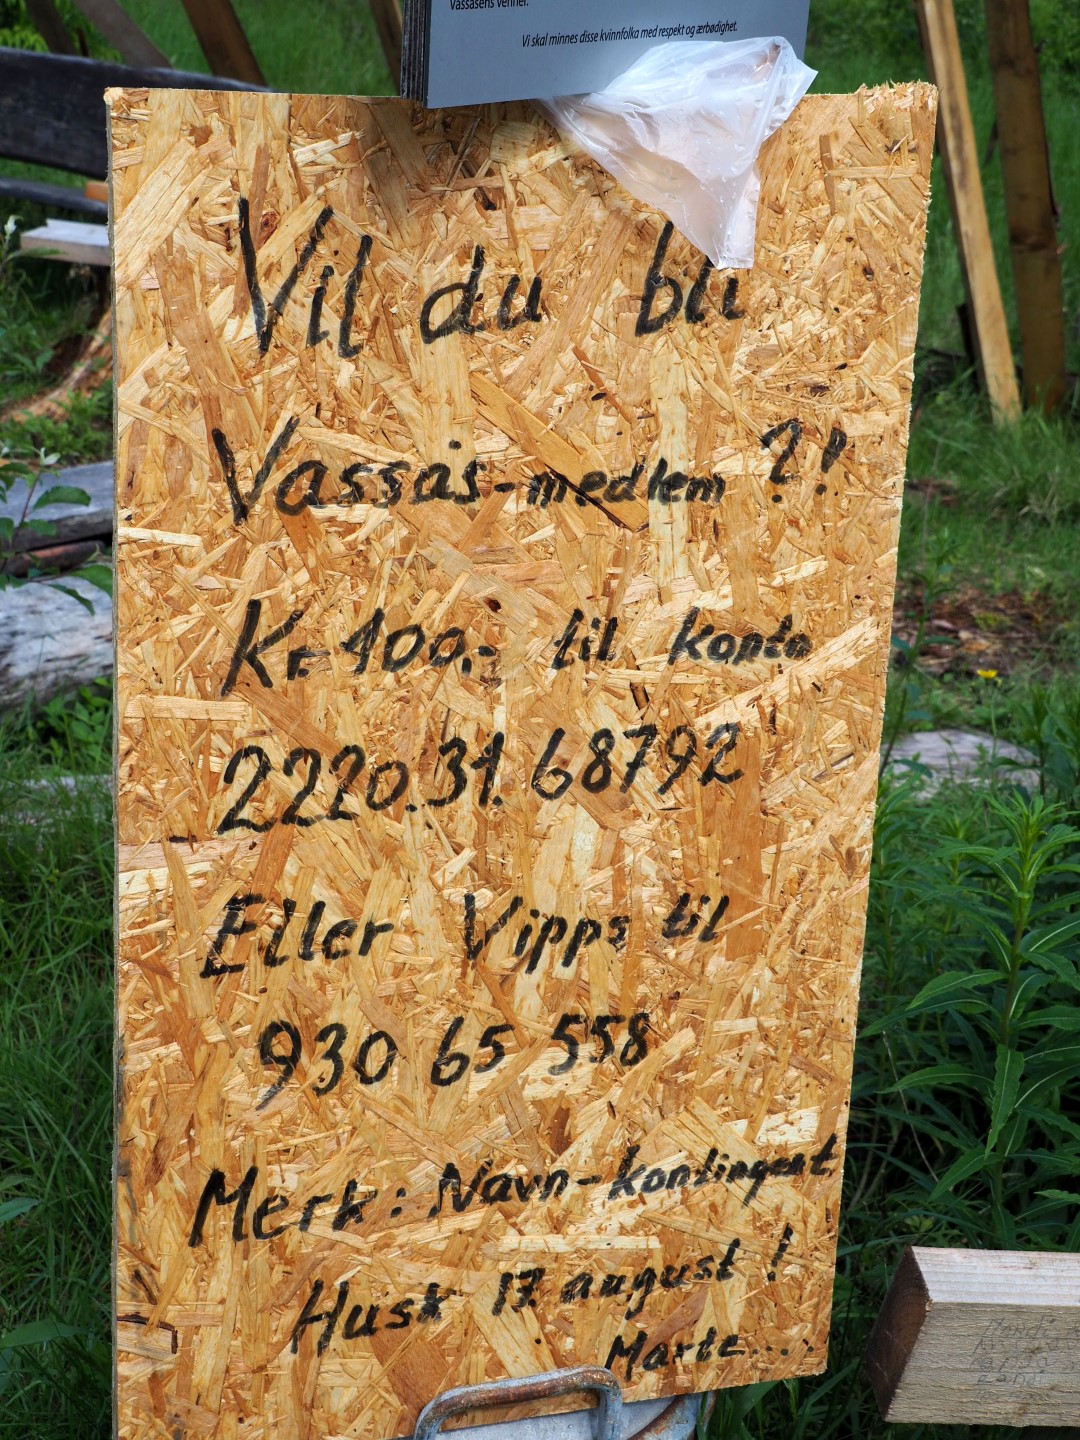 Vassåsens venner.
Vi skal minnes disse kvinnfolka med respekt og ærbødighet.
Vil du bli
Vassås-medlem ?!
Kr 100,- til konto
2220.31.68792
Eller Vipps til
930 65 558
Merk: Navn-kontingent
Husk 17. august !
Marte....